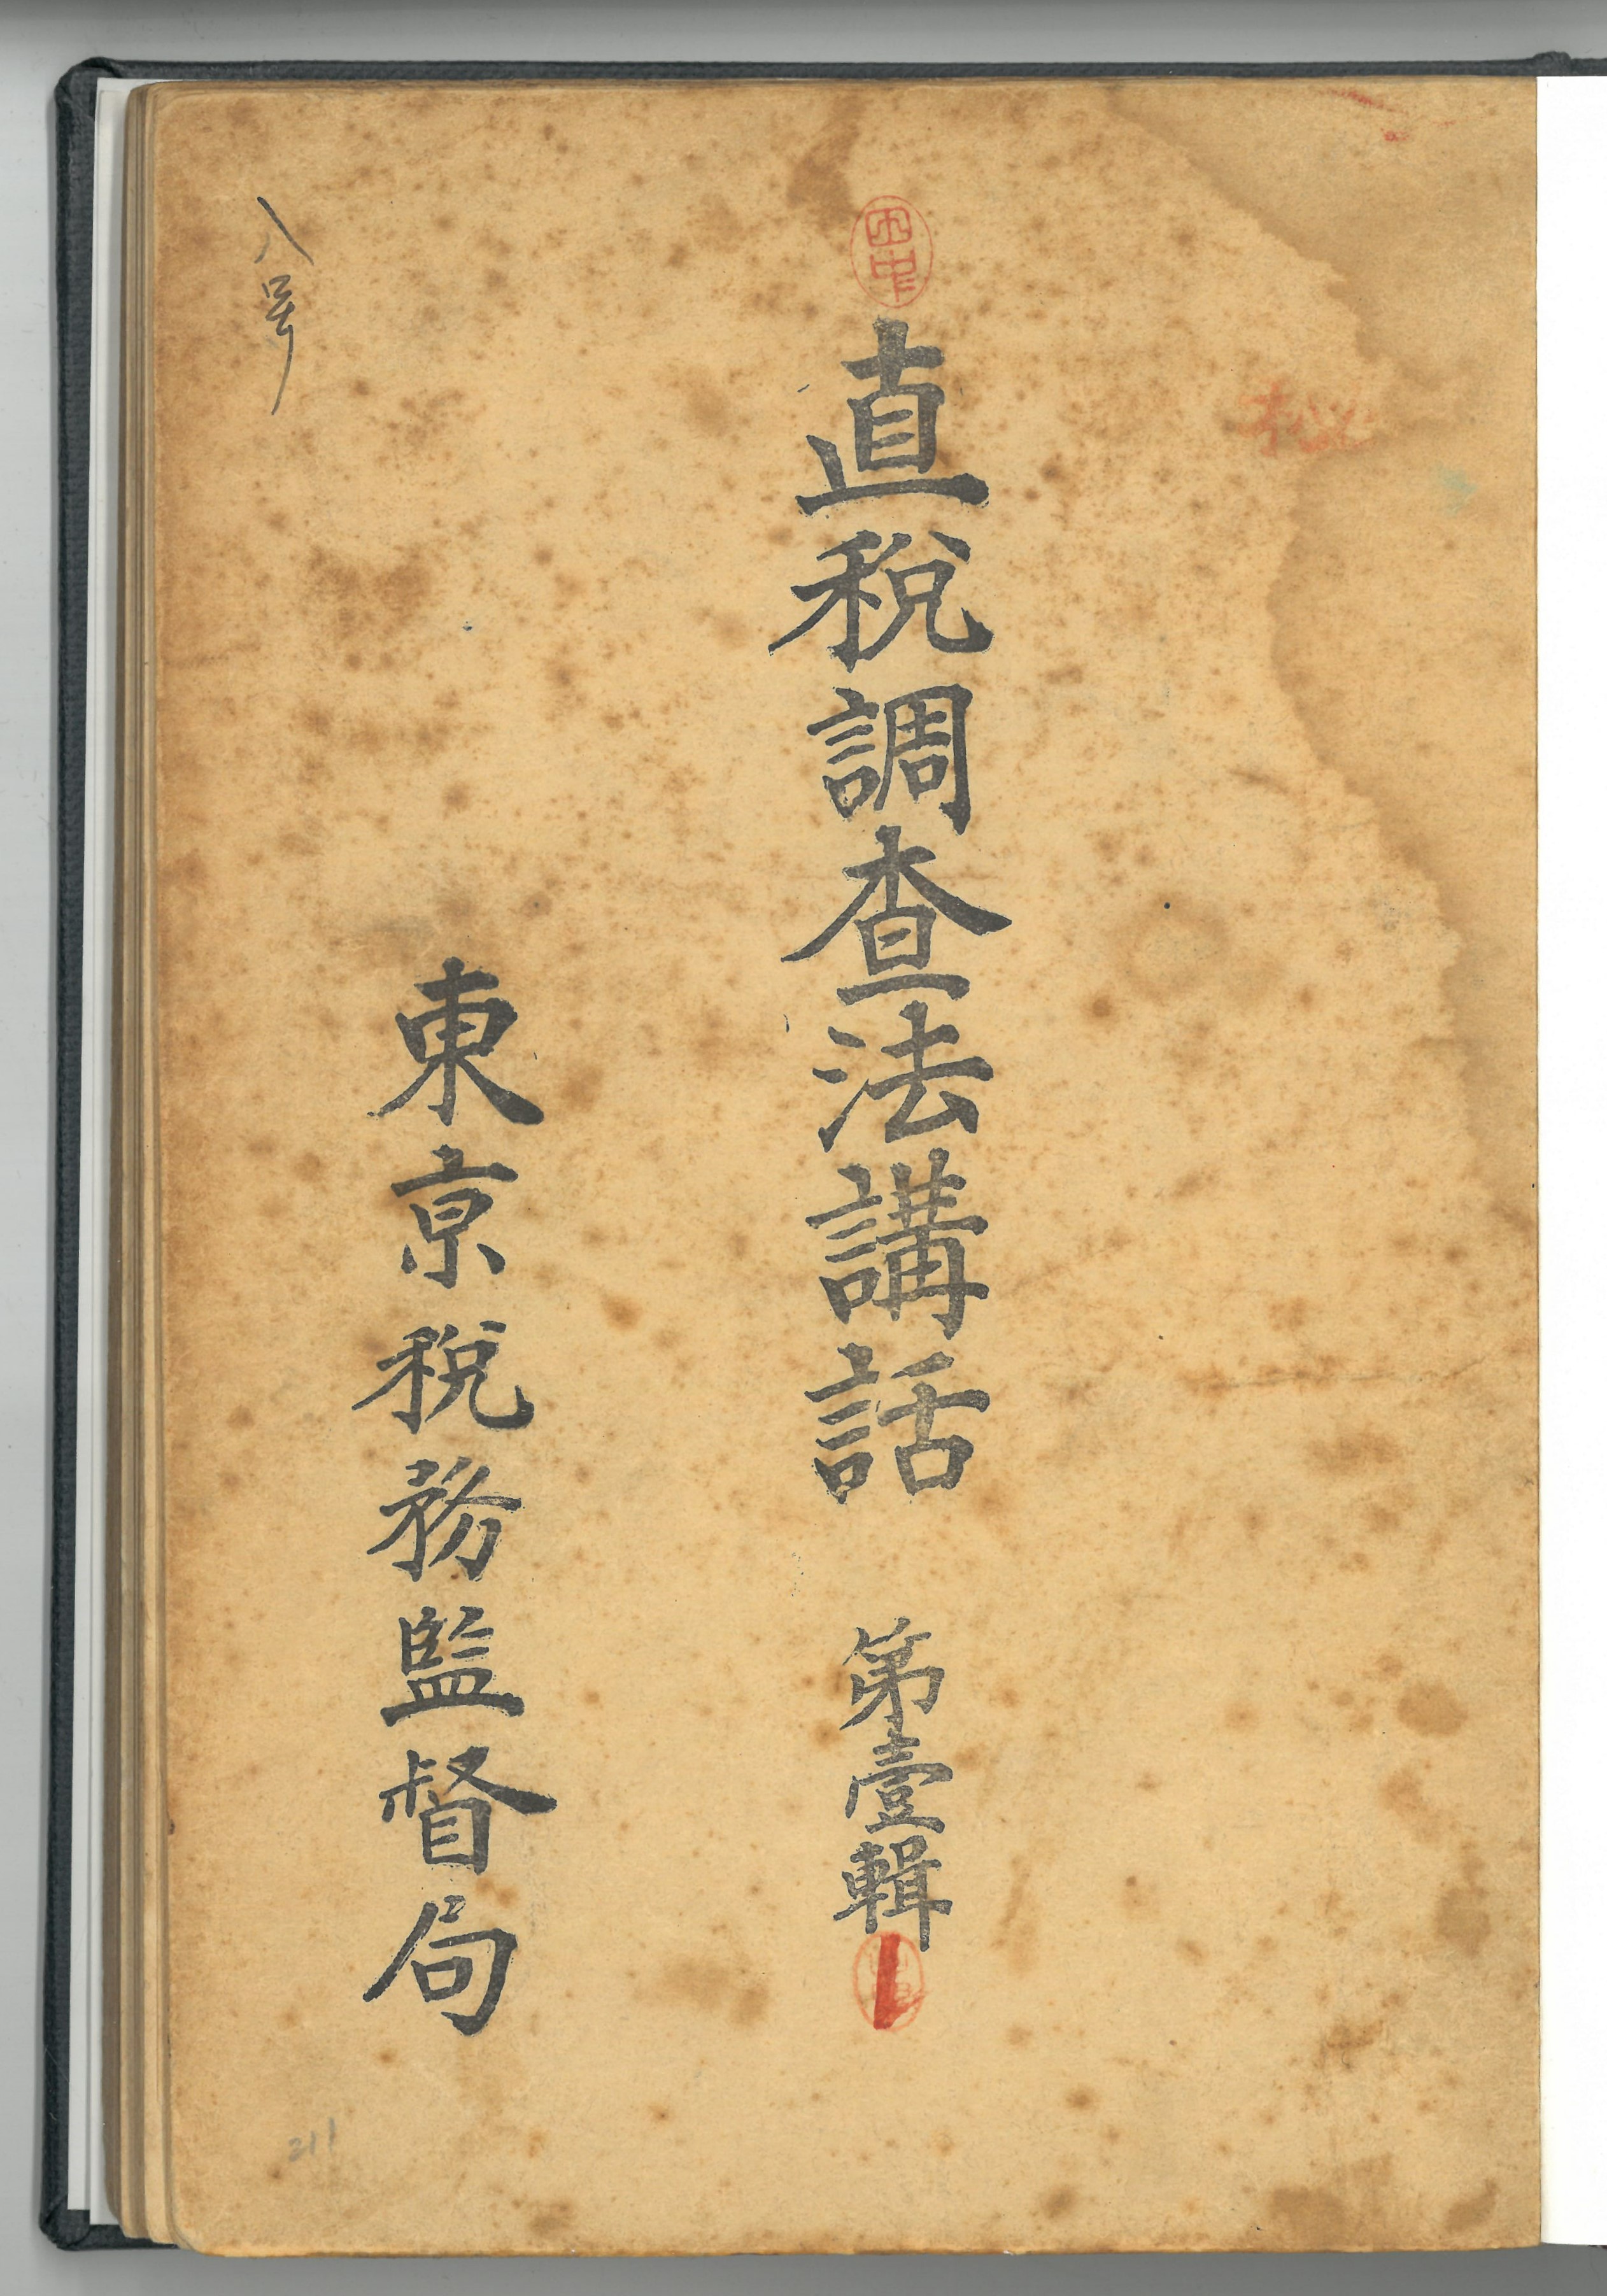 秘
直税調査法講話 第壹輯
東京税務監督局
八号
211